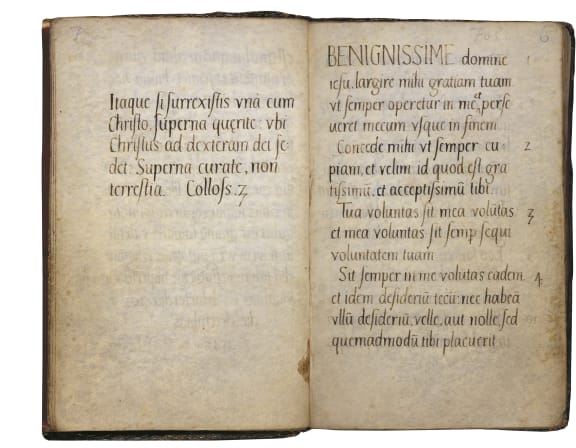 Itaque si surrexistis vnà cum
Christo, superna querite: vbi
Christus ad dexteram dei se-
det: Superna curate, non
terrestia. Colloss. 3
6
BENIGNISSIME domine 1
iesu, largire mihi gratiam tuam
vt semper operetur in me, et perse
ueret mecum vsque in finem.
Concede mihi vt semper cu- 2
piam, et velim id quod est gra
tissimū, et acceptissimū tibi.
Tua voluntas sit mea volūtas 3
et mea voluntas sit semp sequi
voluntatem tuam
Sit semper in me volūtas eadem 4
et idem desideriū tecū: nec habeā
vllū desideriū, velle, aut nolle, sed
quemadmodū tibi placuerit